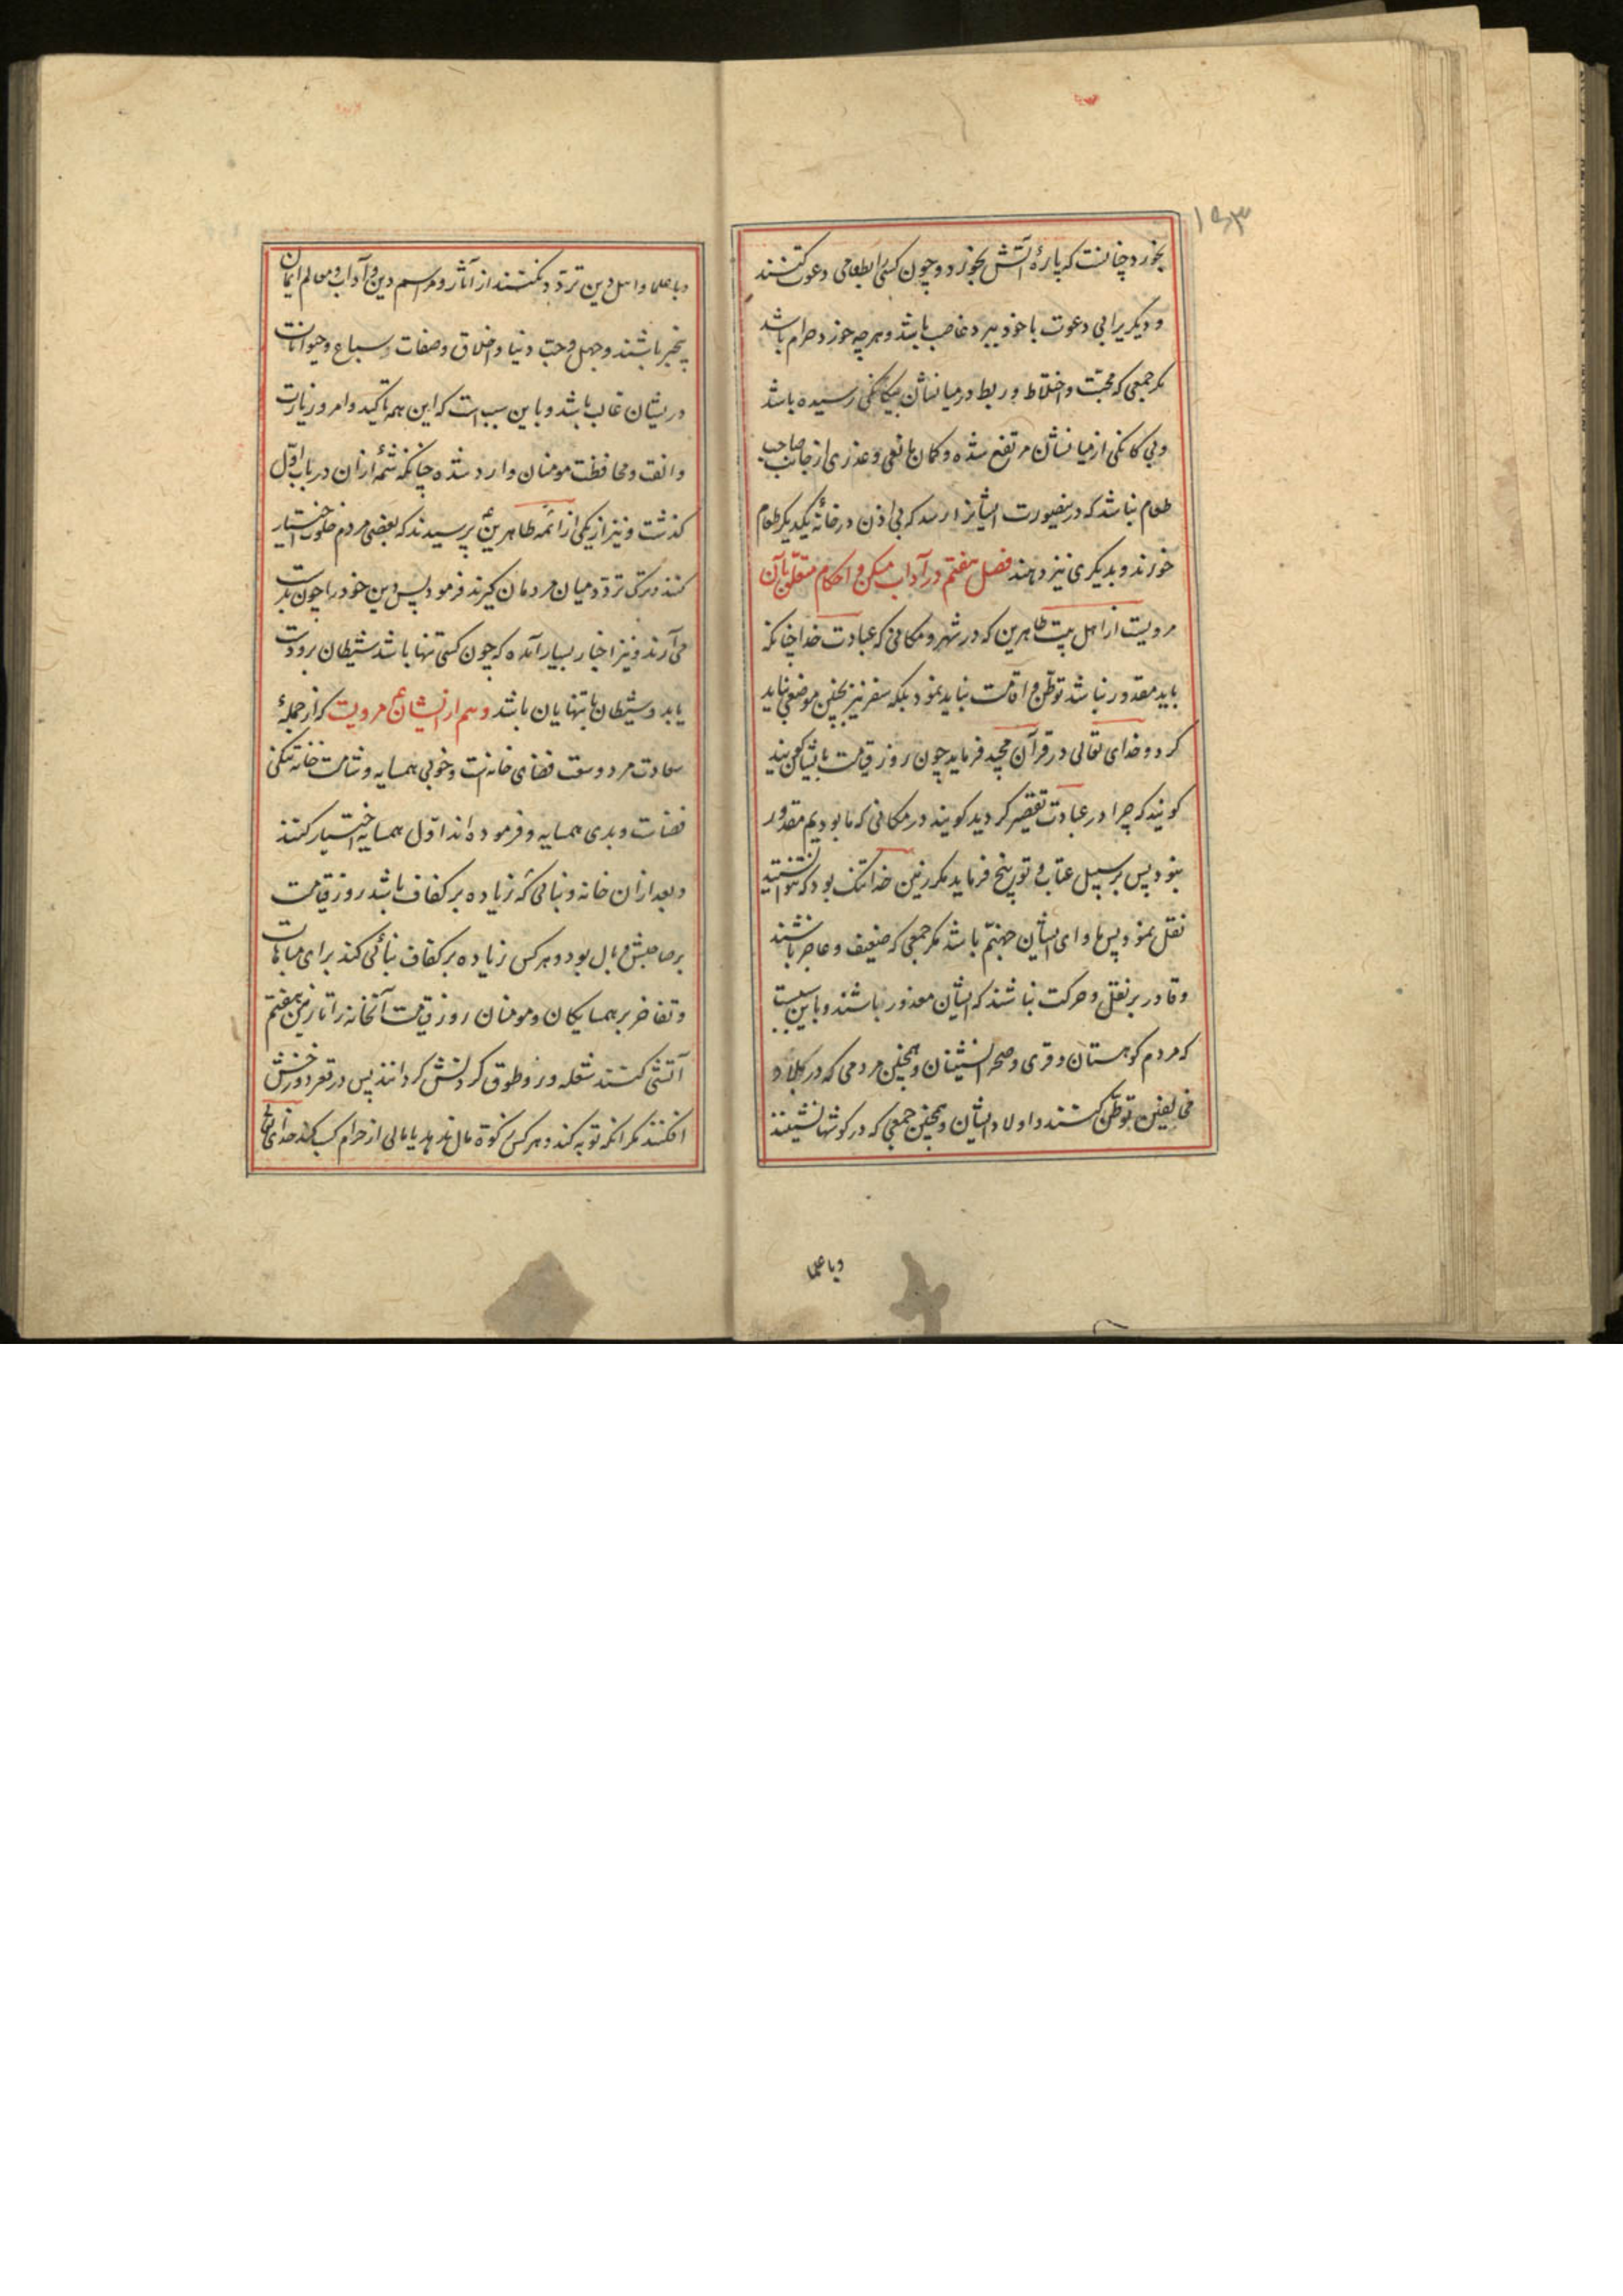 ۱۵۳
بخورد چنانست که پارهٔ آتش بخورد و چون کسیرا بطعامی دعوت کنند
و دیگریرا بی دعوت با خود ببرد غاصب باشد و هرچه خورد حرام باشد
مگر جمعی که محبت و اختلاط و ربط در میانشان بیکانکی رسیده باشد
و بی کانکی از میانشان مرتفع شده و کمان مانعی و عذری از جانب صاحب
طعام نباشد که درینصورت ایشانرا رسد که بی اذن در خانهٔ یکدیکر طعام
خورند و بدیکری نیز دهند فصل هفتم در آداب مسکن و احکام متعلق بآن
مرویست از اهل بیت طاهرین که در شهر و مکانی که عبادت خدا چنانکه
باید مقدور نباشد توطن و اقامت نباید نمود بلکه سفر نیز بچنین موضعی نباید
کرد و خدای تعالی در قرآن مجید فرماید چون روز قیامت
کویند که چرا در عبادت تقصیر کردید کویند در مکانی که ما بودیم مقدور
نبود پس بر سبیل عتاب و توبیخ فرماید مکر زمین خدا تنک بود که نتوانستید
نقل نمود پس ماوای ایشان جهنم باشد مکر جمعی که ضعیف و عاجز باشند
و قادر بر نقل و حرکت نباشند که ایشان معذور باشند و باین سبب است
که مردم کوهستان و قری و صحرانشینان و همچنین مردمی که در بلاد
مخالفین توطن کنند و اولاد ایشان و همچنین جمعی که در کوشها نشینند
و با علما
و با علما و اهل دین تردد نکنند از آثار و مراسم دین و آداب و معالم ایمان
بیخبر باشند و جهل و حب دنیا و اخلاق و صفات سباع و حیوانات
در یشان غالب باشد و باین سبب است که این همه تاکید و امر و زیارت
و الفت و محافظت مومنان وارد شده چنانکه شمهٔ ازان در باب اول
کذشت و نیز از یکی از ائمه طاهرین ع پرسیدند که بعضی مردم خلوت اختیار
کنند و ترک تردد میان مردمان کیرند فرمود پس دین خود را چون بدست
می آرند و نیز اخبار بسیار آمده که چون کسی تنها باشد شیطان برو دست
یابد و شیطان با تنهایان باشد و هم از ایشان ع مرویست که از جملهٔ
سعادت مرد وسعت فضای خانه است و خوبی همسایه و شامت خانه تنکی
فضاست و بدی همسایه و فرموده اند اول همسایه اختیار کنند
و بعد ازان خانه و بنائی که زیاده بر کفاف باشد روز قیامت
بر صاحبش وبال بود و هر کس زیاده بر کفاف بنائی کند برای مباهات
و تفاخر بر همسایکان و مومنان روز قیامت آنخانه را تا زمین هفتم
آتشی کنند شعله ور و طوق کردنش کردانند پس در قعر دوزخش
افکنند مکر انکه توبه کند و هر کس زکوة مال ندهد یا مالی از حرام کسب کند خدای تعالی